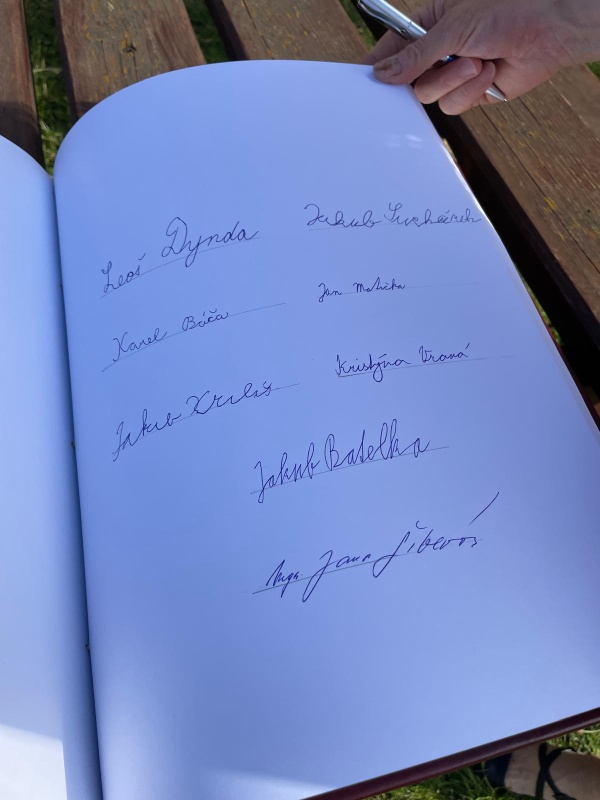 Leoš Dynda
Jakub Suchánek
Karel Báča
Jan Matička
Jakub
Kristýna Vraná
Jakub Batelka
Mgr. Jana